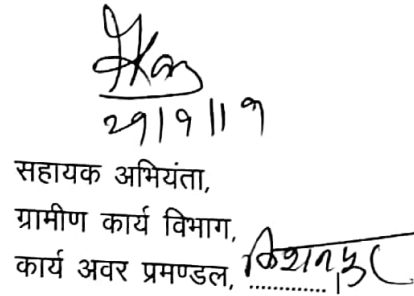 29/9/19
सहायक अभियंता,
ग्रामीण कार्य विभाग,
कार्य अवर प्रमण्डल, किशनपुर